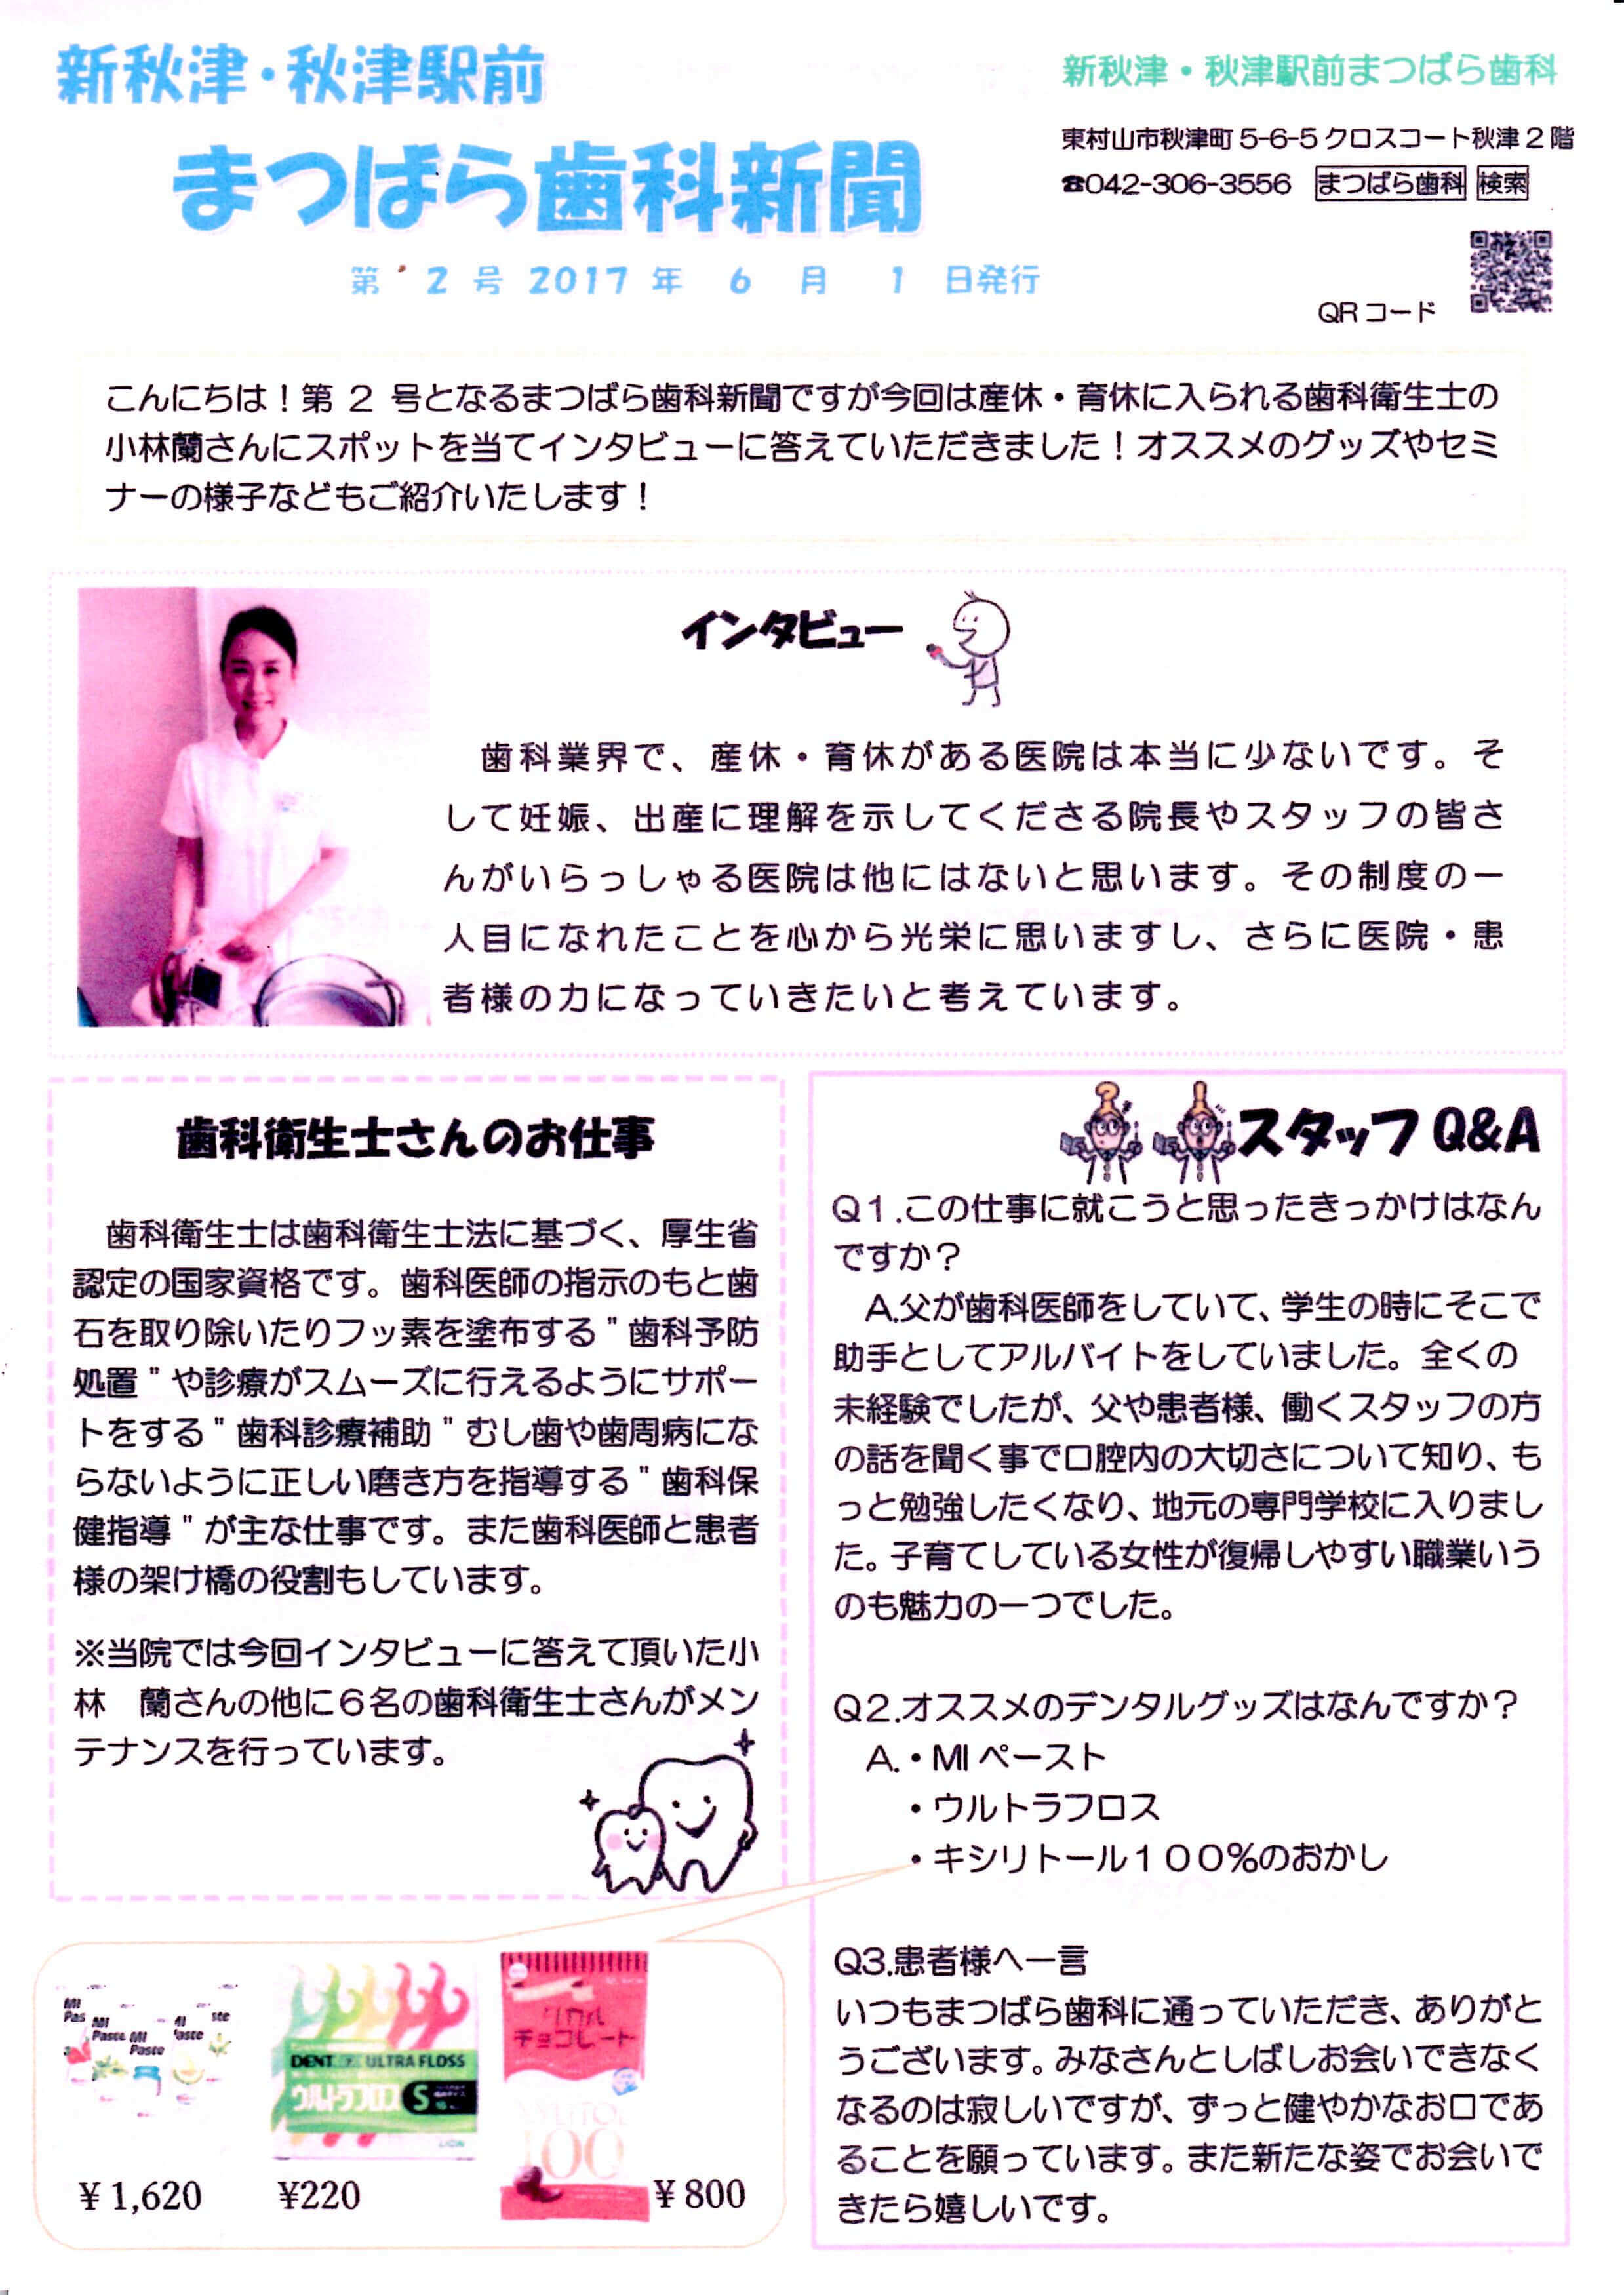 新秋津・秋津駅前
まつばら歯科新聞
第 2 号 2017 年 6 月 1 日発行
新秋津・秋津駅前まつばら歯科
東村山市秋津町 5-6-5 クロスコート秋津 2 階
☎042-306-3556 まつばら歯科 検索
QR コード
こんにちは！第 2 号となるまつばら歯科新聞ですが今回は産休・育休に入られる歯科衛生士の
小林蘭さんにスポットを当てインタビューに答えていただきました！オススメのグッズやセミ
ナーの様子などもご紹介いたします！
インタビュー
歯科業界で、産休・育休がある医院は本当に少ないです。そ
して妊娠、出産に理解を示してくださる院長やスタッフの皆さ
んがいらっしゃる医院は他にはないと思います。その制度の一
人目になれたことを心から光栄に思いますし、さらに医院・患
者様の力になっていきたいと考えています。
歯科衛生士さんのお仕事
歯科衛生士は歯科衛生士法に基づく、厚生省
認定の国家資格です。歯科医師の指示のもと歯
石を取り除いたりフッ素を塗布する＂歯科予防
処置＂や診療がスムーズに行えるようにサポー
トをする＂歯科診療補助＂むし歯や歯周病にな
らないように正しい磨き方を指導する＂歯科保
健指導＂が主な仕事です。また歯科医師と患者
様の架け橋の役割もしています。
※当院では今回インタビューに答えて頂いた小
林　蘭さんの他に６名の歯科衛生士さんがメン
テナンスを行っています。
スタッフ Q&A
Q１.この仕事に就こうと思ったきっかけはなん
ですか？
A.父が歯科医師をしていて、学生の時にそこで
助手としてアルバイトをしていました。全くの
未経験でしたが、父や患者様、働くスタッフの方
の話を聞く事で口腔内の大切さについて知り、も
っと勉強したくなり、地元の専門学校に入りまし
た。子育てしている女性が復帰しやすい職業いう
のも魅力の一つでした。
Q2.オススメのデンタルグッズはなんですか？
A.・MI ペースト
・ウルトラフロス
・キシリトール１００％のおかし
Q3.患者様へ一言
いつもまつばら歯科に通っていただき、ありがと
うございます。みなさんとしばしお会いできなく
なるのは寂しいですが、ずっと健やかなお口であ
ることを願っています。また新たな姿でお会いで
きたら嬉しいです。
MI
Paste
MI
Paste
DENT. ULTRA FLOSS
ウルトラフロス S
LION
チョコレート
100
¥ 1,620
¥220
¥ 800